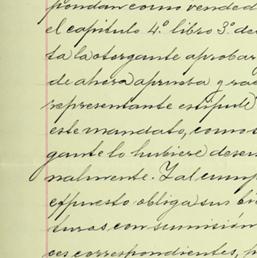 pondan como vended
el capitulo 4.º libro 3.º de
ta la otorgante aprobar
de ahora aprueba y ra
representante estipule
este mandato, como s
gante lo hubiere desem
nalmente. Y al cump
espuesto obliga sus bie
turas con sumisión
ces correspondientes, p